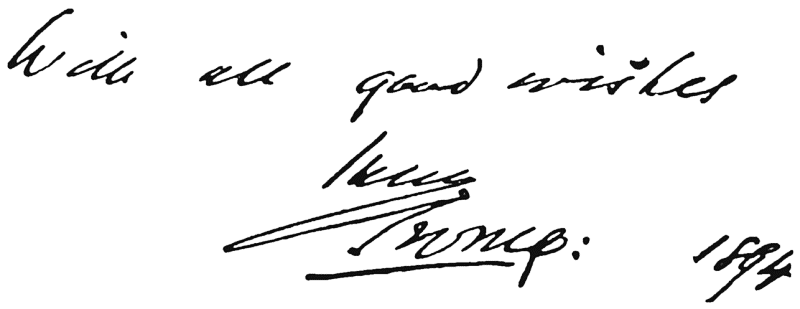 With all good wishes
Henry
Irving: 1894